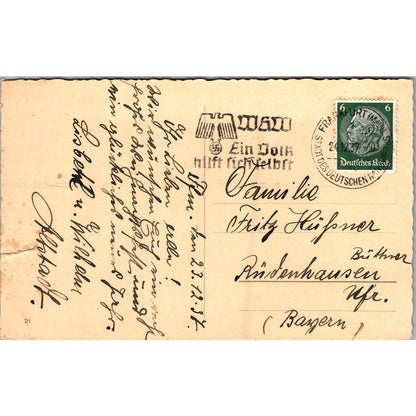 Ffm. den 23.12.37.
Ihr Lieben alle!
Wir wünschen Euch ein recht
frohes Weihnachtsfest und
ein glückliches neues Jahr.
Lisbeth u. Wilhelm
Altstadt.
21
WHW
Ein Volk
hilft sich selbst
FRANKFURT (MAIN)
STADT DES DEUTSCHEN
6 6
Deutsches Reich
Familie
Fritz Hüßner
Büttner
Rüdenhausen
Ufr.
(Bayern)